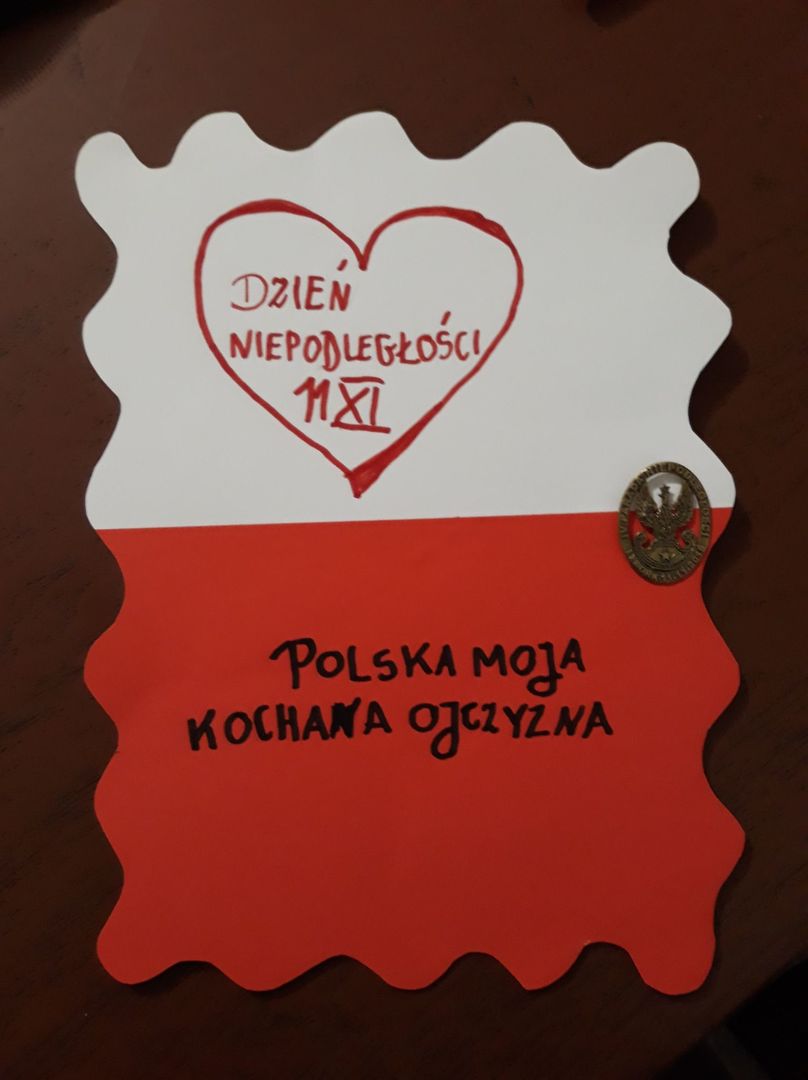 DZIEŃ
NIEPODLEGŁOŚCI
11 XI
POLSKA MOJA
KOCHANA OJCZYZNA